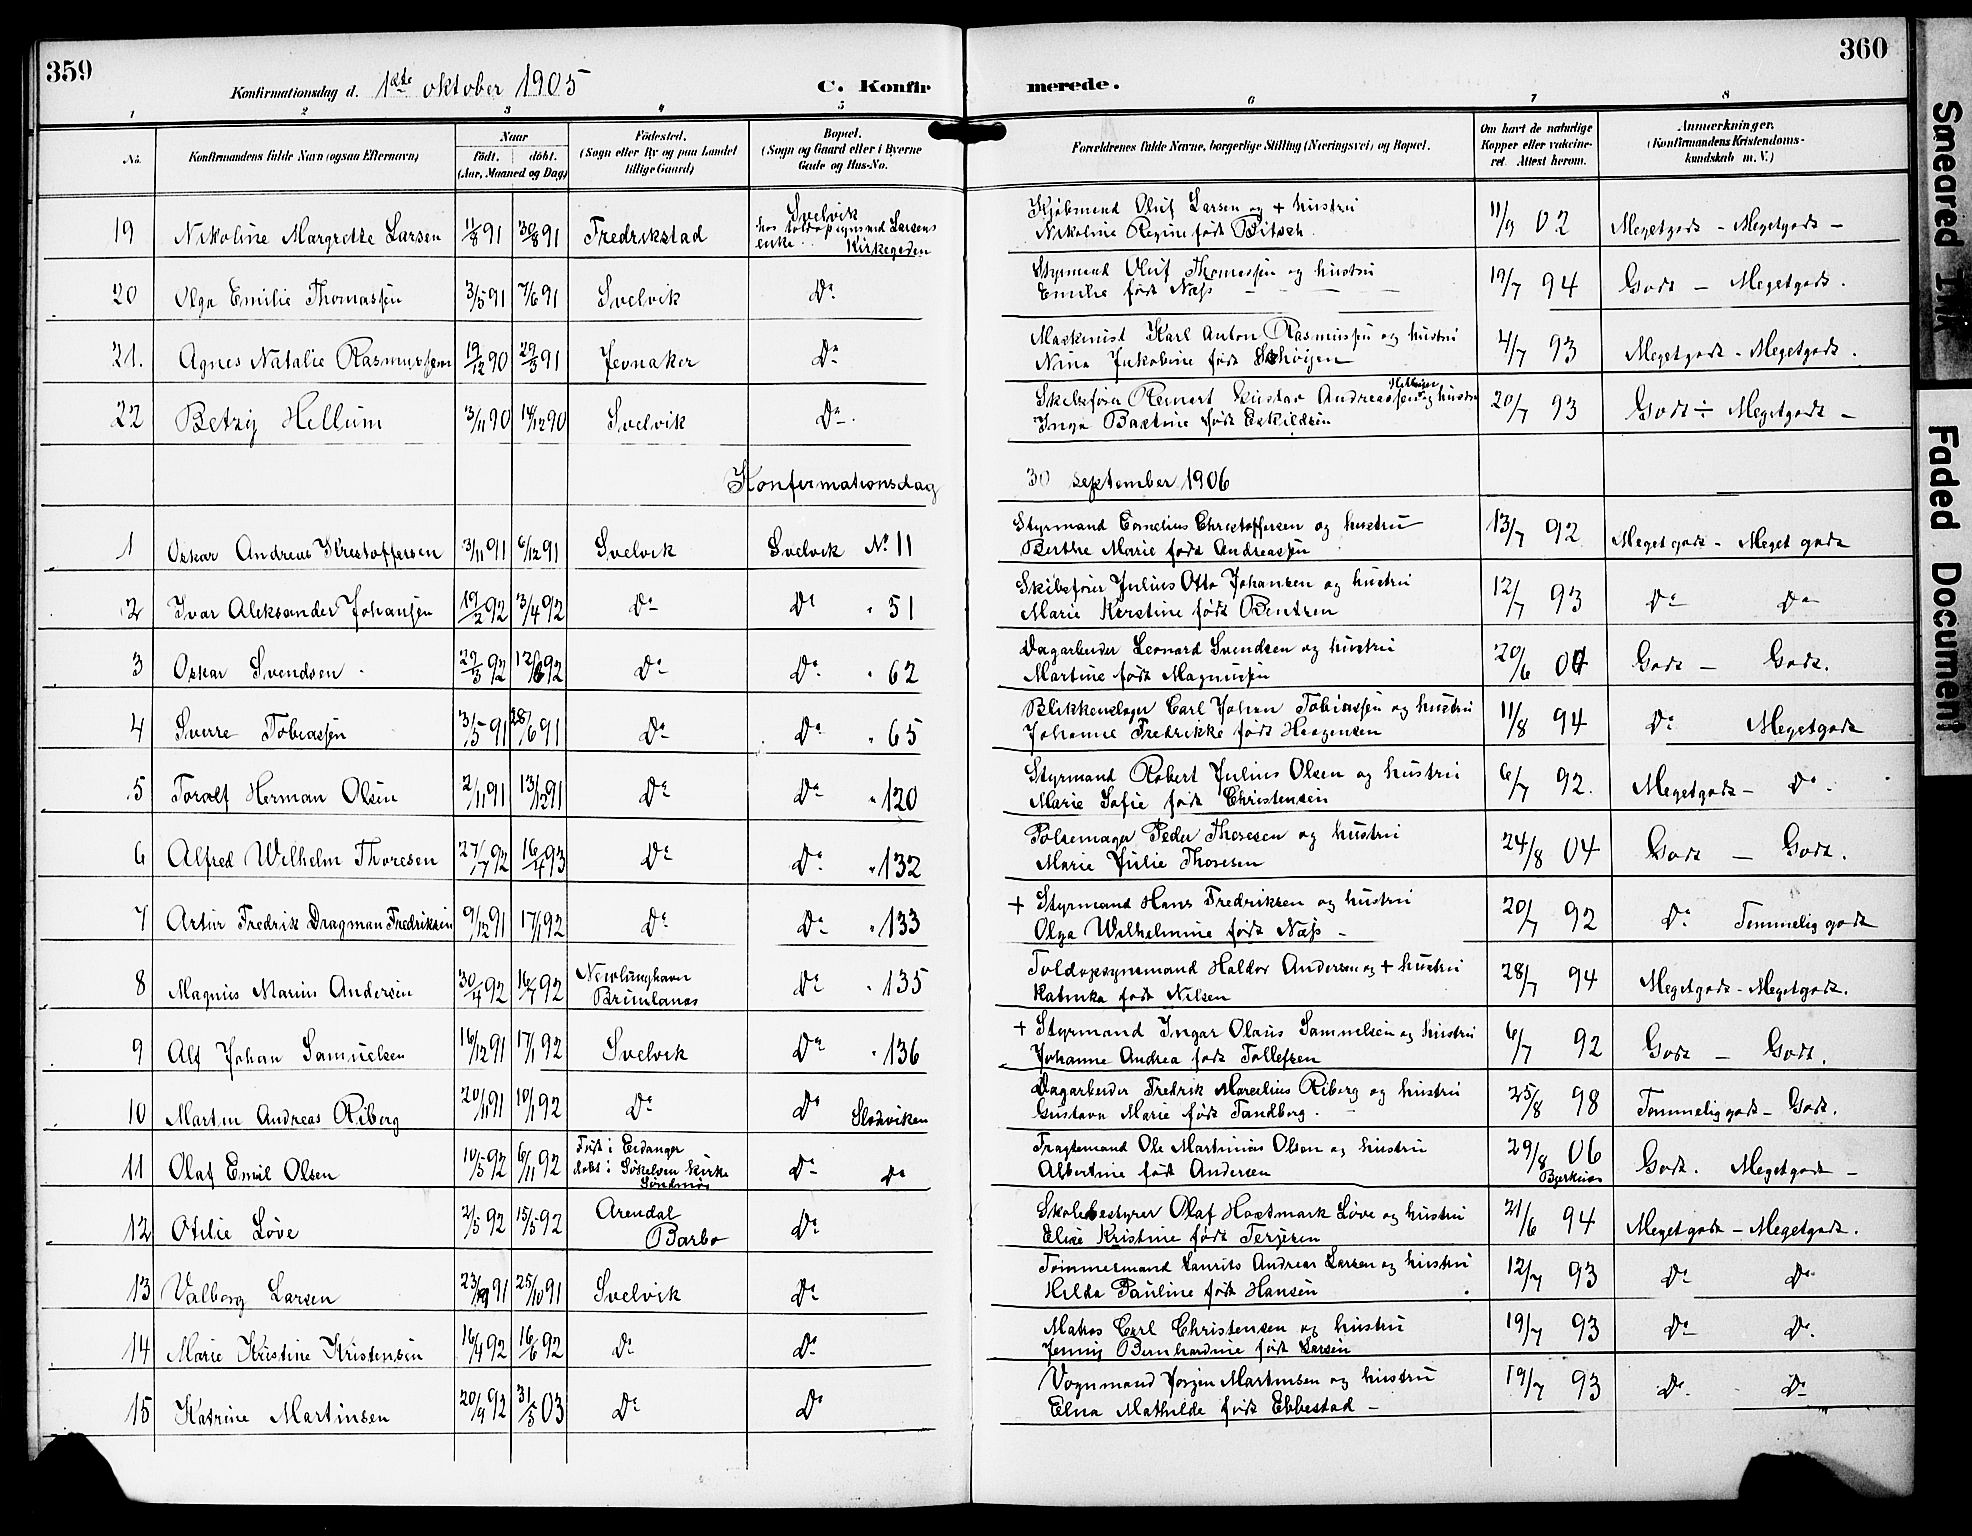 359
Konfirmationsdag d. 1ste oktober 1905
C. Konfir
merede.
360
1 2 3 4 5 6 7 8
No.
Konfirmandens fulde Navn (ogsaa Efternavn)
Naar
født. døbt.
(Aar, Maaned og Dag)
Födested.
(Sogn eller By og paa Landet
tillige Gaard)
Bopæl.
(Sogn og Gaard eller i Byerne
Gade og Hus-No.
Forældrenes fulde Navne, borgerlige Stilling (Næringsvei) og Bopæl.
Om havt de naturlige
Kopper eller vakcine-
ret. Attest herom.
Anmærkninger.
(Konfirmandens Kristendoms-
kundskab m. V.)
19 Nikoline Margrethe Larsen 11/8 91 30/8 91 Fredrikstad Svelvik
hos toldopsynsmd Larsens
enke Kirkegaden
Kjøbmend Oluf Larsen og + hustru
Nikoline Regine født Bitsch.
11/9 02 Megetgodt - Megetgodt -
20 Olga Emilie Thomassen 3/5 91 7/6 91 Svelvik Do
Styrmend Oluf Thomassen og hustru
Emilie født Næss
19/7 94 Godt - Megetgodt.
21. Agnes Natalie Rasmussen 19/12 90 29/3 91 Jevnaker Do
Maskenist Karl Anton Rasmussen og hustru
Nina Jakobine født Schøyen
4/7 93 Megetgodt - Megetgodt.
22 Betzy Hellum 3/11 90 14/12 90 Svelvik Do
Skibsfører Reinert Gustav Andreassen Hellum og hustru
Inga Baxtine født Eskildsen
20/7 93 Godt - Megetgodt -
Konfirmationsdag 30 september 1906
1 Oskar Andreas Kristoffersen 3/11 91 6/12 91 Svelvik Svelvik No 11
Styrmand Cornelius Christoffersen og hustru
Berthe Marie født Andreassen
13/7 92 Meget godt - Meget godt
2 Ivar Aleksander Johansen 19/2 92 3/4 92 Do Do " 51
Skibsfører Julius Otto Johansen og hustru
Marie Kerstine født Bentzen
12/7 93 Do Do
3 Oskar Svendsen 29/3 92 12/6 92 Do Do " 62
Dagarbeider Leonard Svendsen og hustru
Martine født Magnussen
20/6 04 Godt - Godt.
4 Sverre Tobiassen 3/5 91 28/6 91 Do Do " 65
Blikkenslager Carl Johan Tobiassen og hustru
Johanne Fredrikke født Haagensen
11/8 94 Do Megetgodt
5 Toralf Herman Olsen 2/11 91 13/12 91 Do Do " 120
Styrmand Robert Julius Olsen og hustru
Marie Sofie født Christensen
6/7 92. Megetgodt - Do.
6 Alfred Wilhelm Thoresen 27/7 92 16/4 93 Do Do " 132
Pølsemager Peder Thoresen og hustru
Marie Julie Thoresen
24/8 04 Godt - Godt.
7 Artur Fredrik Dragman Fredriksen 9/12 91 17/1 92 Do Do " 133
+ Styrmand Hans Fredriksen og hustru
Olga Wilhelmine født Næss -
20/7 92 Do Temmelig godt
8 Magnus Marius Andersen 30/4 92 16/7 92 Nevlunghavn
Brunlanæs Do " 135
Toldopsynsmand Haldor Andersen og + hustru
Katinka født Nilsen
28/7 94 Megetgodt - Megetgodt.
9 Alf Johan Samuelsen 16/12 91 17/1 92 Svelvik Do " 136
+ Styrmand Ingar Olaus Sammelsen og hustru
Johanne Andrea født Tollefsen
6/7 92 Godt - Godt.
10 Martin Andreas Riberg 20/11 91 10/1 92 Do Do Slodviken
Dagarbeider Fredrik Marcelius Riberg og hustru
Gustava Marie født Tandberg.
25/8 98 Temmelig godt - Godt.
11 Olaf Emil Olsen 10/5 92 6/11 92 Født i Eidanger
døbt i Søkelven Kirke
Søndmør Do Do
Fragtemand Ole Martinius Olsen og hustru
Albertine født Andersen
29/8 06 Godt. Megetgodt -
12 Otilie Løve 2/5 92 15/5 92 Arendal
Barbo Do
Skolebestyrer Olaf Hoxtmark Løve og hustru
Elise Kristine født Terjesen
21/6 94 Megetgodt - Megetgodt.
13 Valborg Larsen 23/9 91 25/10 91 Svelvik Do
Tømmermand Laurits Andreas Larsen og hustru
Hilda Pauline født Hansen
12/7 93 Do Do
14 Marie Kristine Kristensen 16/4 92 16/6 92 Do Do
Matros Carl Christensen og hustru
Jenny Bernhardine født Larsen
19/7 93 Do Do.
15 Katrine Martinsen 20/9 92 31/5 03 Do Do
Vognmand Jørgen Martinsen og hustru
Elna Mathilde født Ebbestad -
19/7 93 Do. Do
Smeared Ink
Faded Document